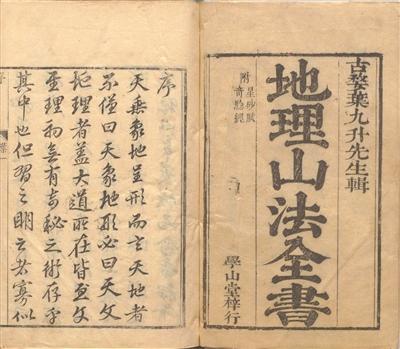 古婺葉九升先生輯
地理山法全書
附
星砂賦
奇驗經
學山堂梓行
序
天垂象地呈形而言天地者
不僅曰天象地形必曰天文
地理者蓋大道所在皆至文
至理初無有奇秘之術存乎
其中也但習之明之者寡似